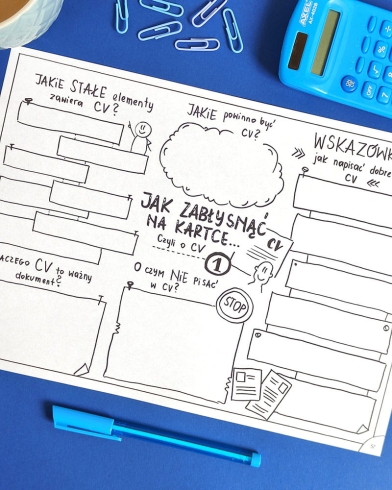 JAKIE STAŁE elementy
zawiera CV?
JAKIE powinno być
CV?
WSKAZÓWK
jak napisać dobre
CV
JAK ZABŁYSNĄĆ
NA KARTCE...
Czyli o CV
1
CV
DLACZEGO CV to ważny
dokument?
O czym NIE pisać
w CV?
STOP
AXEL